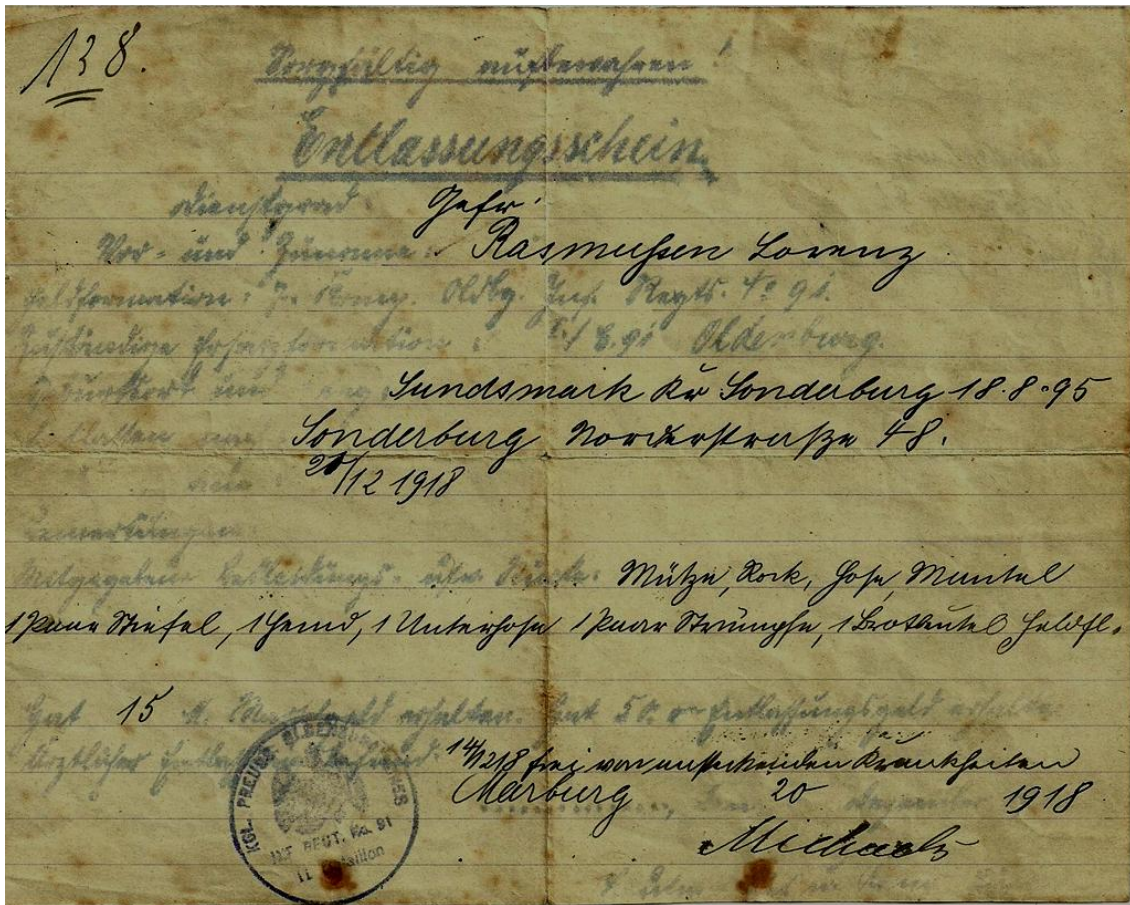 138.
Sorgfältig aufbewahren!
Entlassungsschein.
Dienstgrad: Gefr.
Vor- und Zuname: Rasmussen Lorenz
Feldformation: Komp. Oldbg. Inf. Regts. No 91.
Zuständige Ersatzformation: E. 91 Oldenburg.
Geburtsort und Sundsmark Kr Sonderburg 18.8.95
Entlassen nach Sonderburg Norderstraße 48.
20/12 1918
Bemerkungen
Mitgegebene Bekleidungs- usw. Stücke: Mütze, Rock, Hose, Mantel
1 Paar Stiefel, 1 Hemd, 1 Unterhose 1 Paar Strümpfe, 1 Brotbeutel Feldfl.
Hat 15 M. Marschgeld erhalten. Hat 50 M Entlassungsgeld erhalten
Ärztlicher Entlassungsbefund: 14/12 18 frei von ansteckenden Krankheiten
Marburg, den 20 Dezember 1918
Michaels
KGL. PREUSS. OLDENBURGISCHES
INF. REGT. No. 91
II. Bataillon